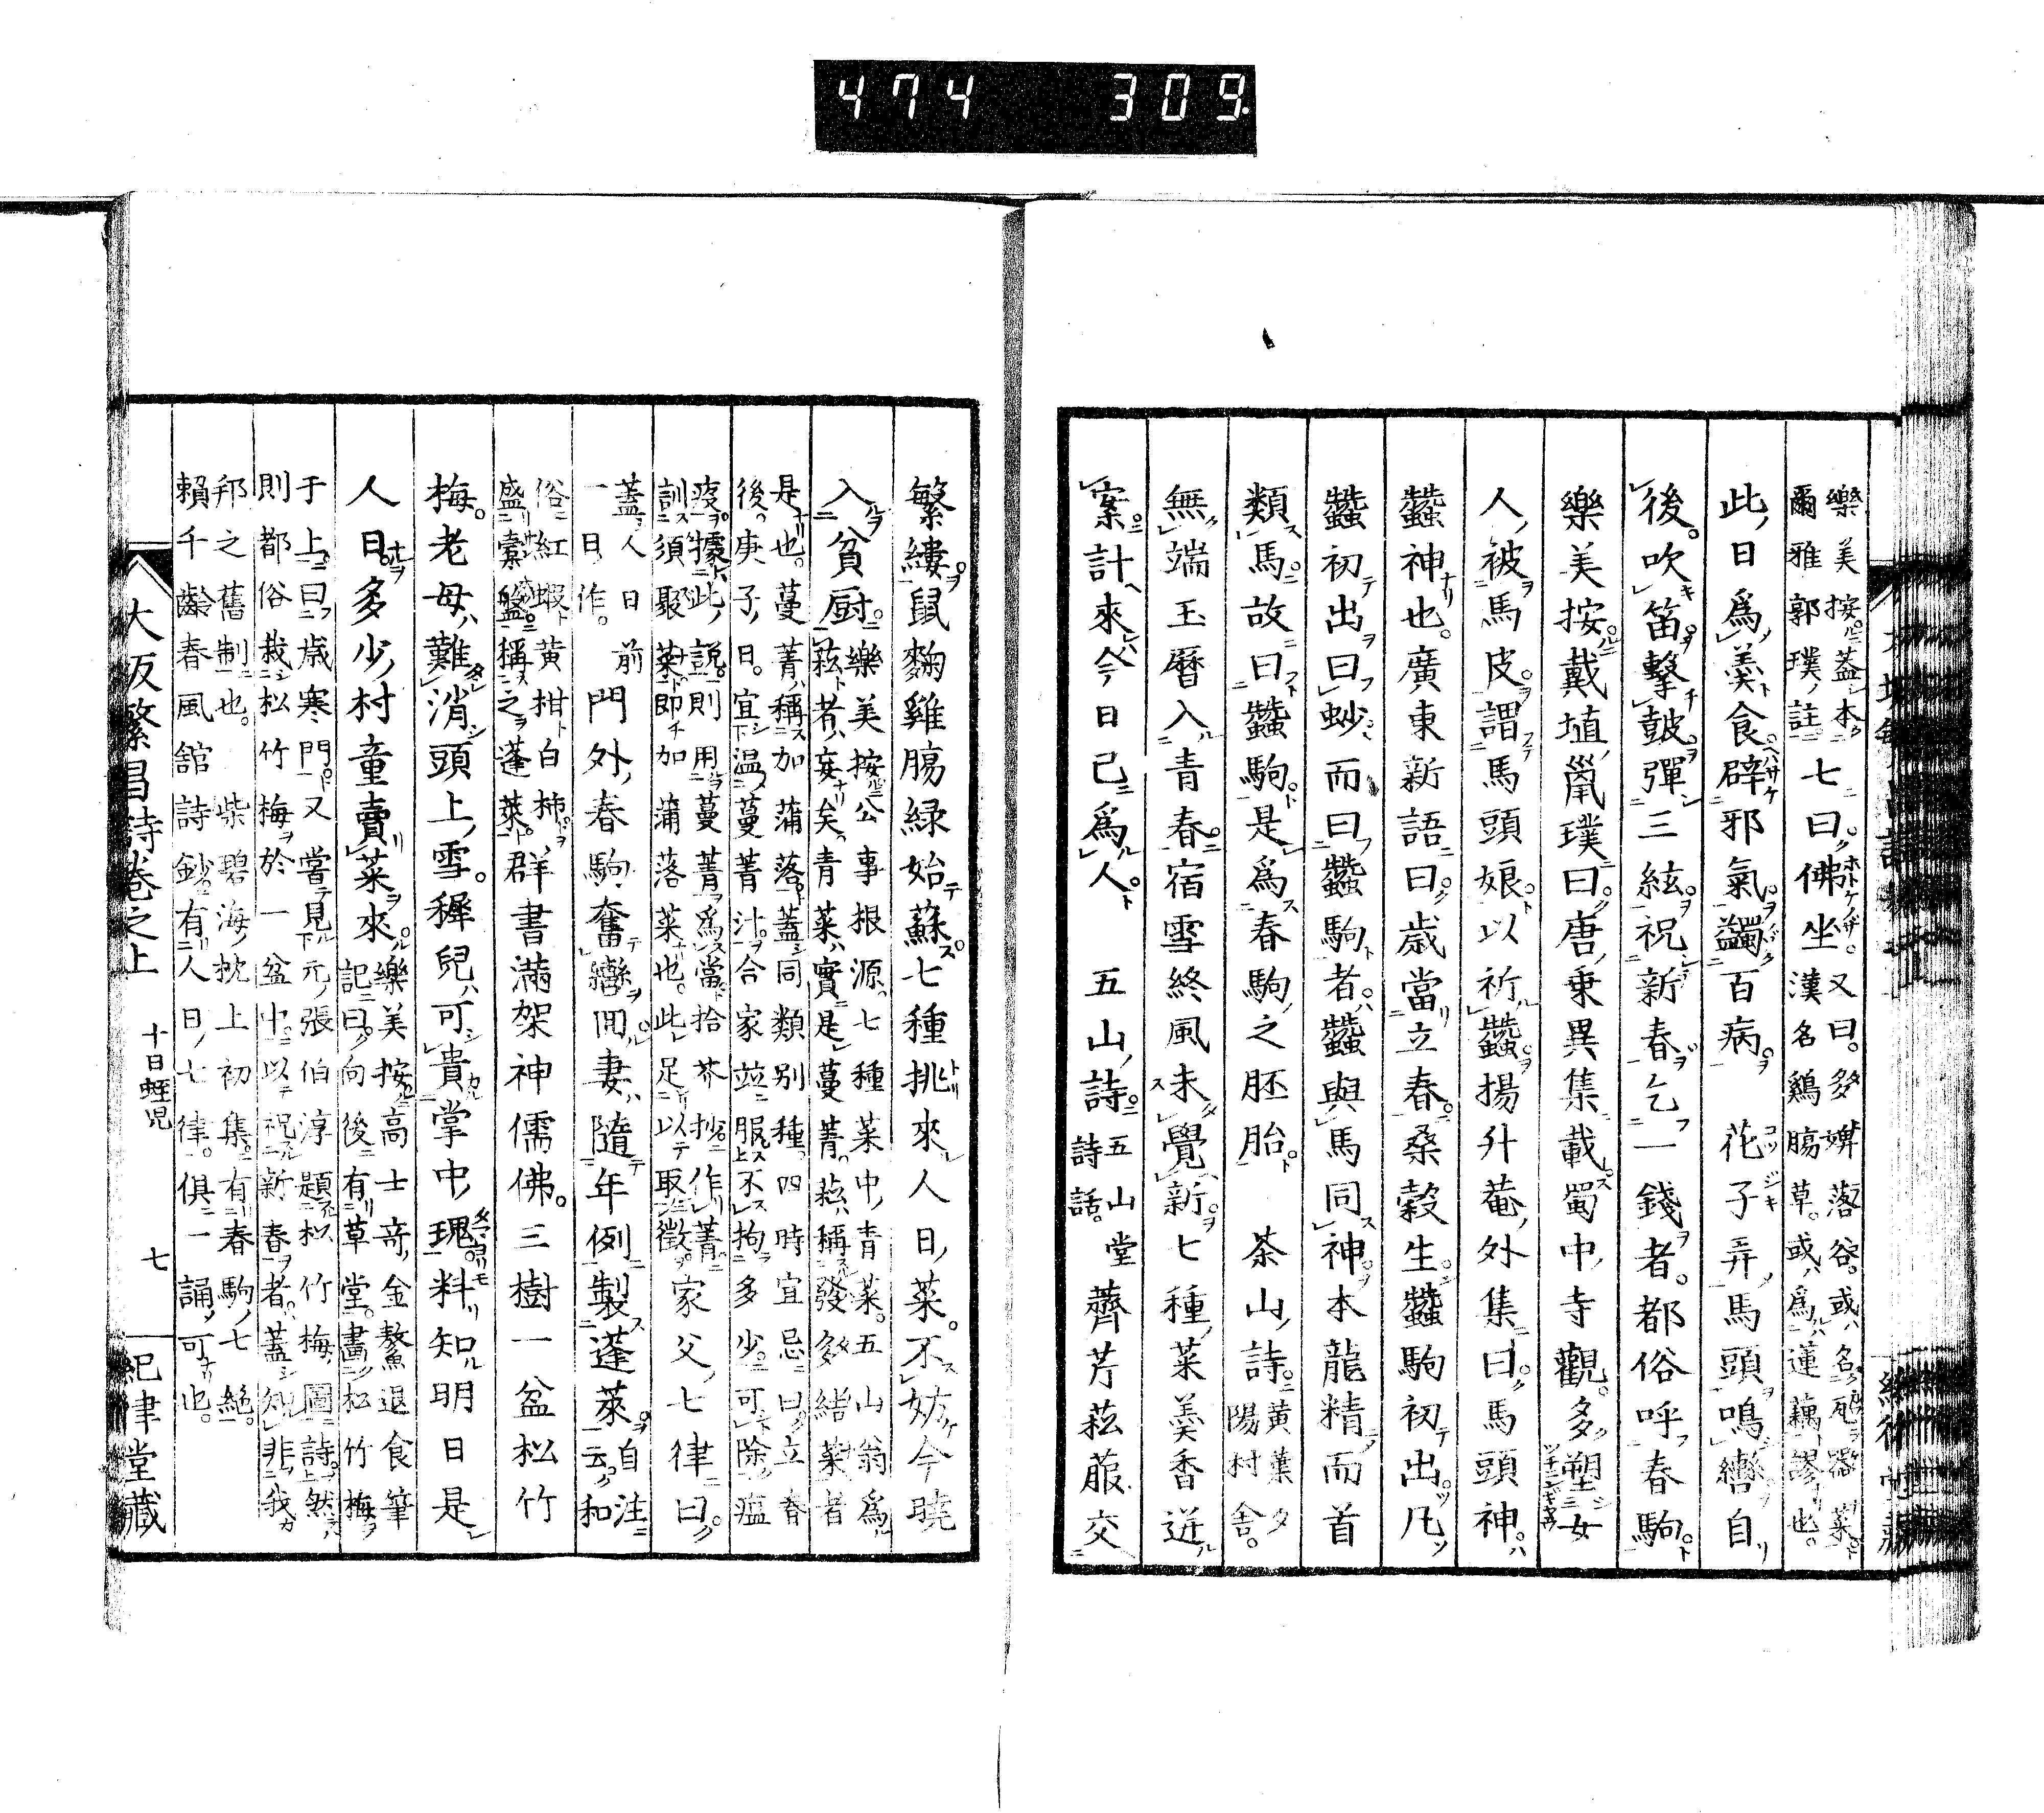 474 309.
樂美按蓋本七曰佛坐又曰多婢落谷或名瓦器菜
爾雅郭璞註 漢名鷄腸草或爲蓮藕謬也
此日爲羹食辟邪氣蠲百病 花子弄馬頭鳴轡自
後吹笛擊皷彈三絃祝新春乞一錢者都俗呼春駒
樂美按戴埴鼠璞曰唐乘異集載蜀中寺觀多塑女
人被馬皮謂馬頭娘以祈蠶揚升菴外集曰馬頭神
蠶神也廣東新語曰歲當立春桑穀生蠶駒初出凡
蠶初出曰𧊅而曰蠶駒者蠶與馬同神本龍精而首
類馬故曰蠶駒是爲春駒之胚胎 茶山詩黃葉夕
陽村舍
無端玉曆入青春宿雪終風未覺新七種菜羹香迸
案計來今日已爲人 五山詩五山堂
詩話 薺芹菘菔交
繁縷鼠麴雞腸緑始蘇七種挑來人日菜不妨今曉
入貧厨樂美按公事根源七種菜中青菜五山翁爲
菘者妄矣青菜實是蔓菁菘稱發多結菜者
是也蔓菁稱加蒲落蓋同類別種四時宜忌曰立春
後庚子日宜温蔓菁汁合家並服不拘多少可除瘟
疫據此說則用蔓菁爲當拾芥抄作菁
訓須聚菜即加蒲落菜也此足以取徵 家父七律曰
蓋人日前
一日作 門外春駒奮轡回妻隨年例製蓬萊自注
云和
俗紅蝦黃柑白柿
盛槖盤稱之蓬萊 群書滿架神儒佛三樹一盆松竹
梅老母難消頭上雪穉兒可貴掌中瑰料知明日是
人日多少村童賣菜來樂美按高士奇金鰲退食筆
記曰向後有草堂畫松竹梅
于上曰歲寒門又嘗見元張伯淳題松竹梅圖詩然
則都俗栽松竹梅於一盆中以祝新春者蓋知非我
邦之舊制也 柴碧海枕上初集有春駒七絶
賴千齡春風館詩鈔有人日七律俱一誦可也
大阪繁昌詩卷之上 十日蛭児 七 紀律堂藏